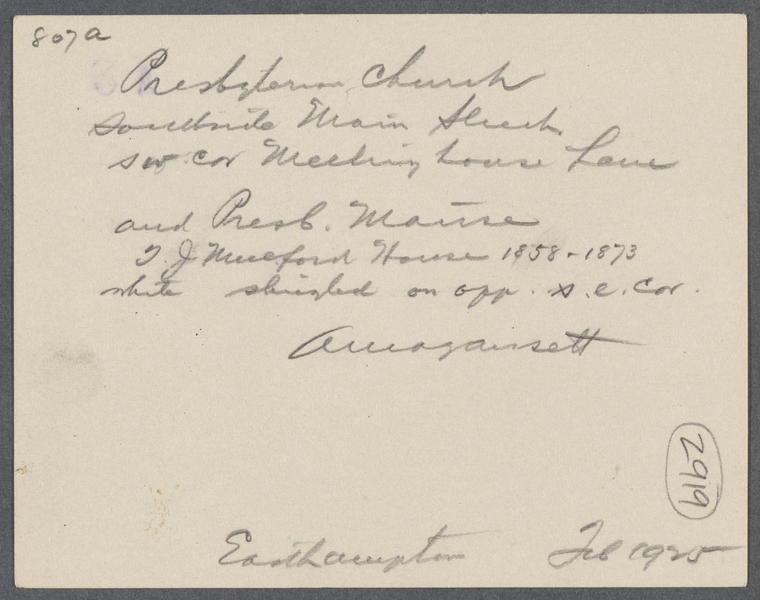 807a
Presbyterian Church
Southside Main Street
sw. cor Meeting house Lane
and Presb. Manse
T. J Mulford House 1858-1873
white shingled on opp. s.e. cor.
Amagansett
2919
Easthampton Feb 1925